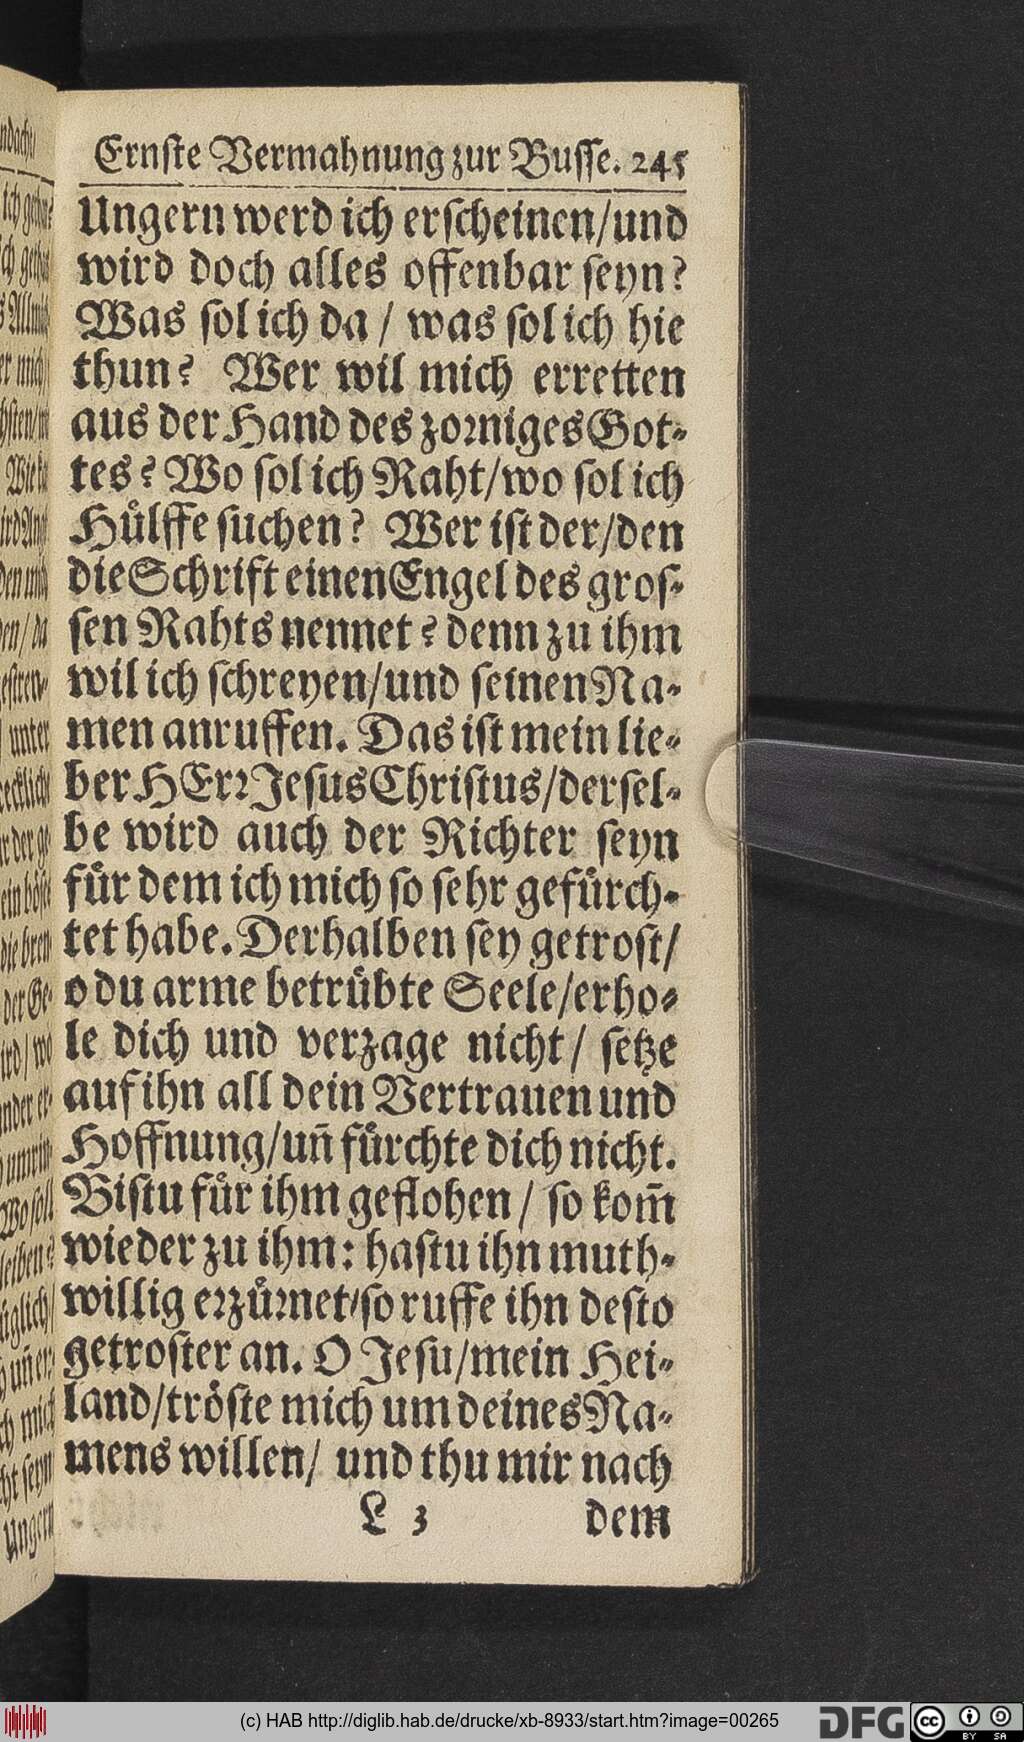 Ernste Vermahnung zur Busse. 245
Ungern werd ich erscheinen/und
wird doch alles offenbar seyn?
Was sol ich da / was sol ich hie
thun? Wer wil mich erretten
aus der Hand des zorniges Got-
tes? Wo sol ich Raht/wo sol ich
Hülffe suchen? Wer ist der/den
die Schrift einen Engel des gros-
sen Rahts nennet? denn zu ihm
wil ich schreyen/und seinen Na-
men anruffen. Das ist mein lie-
ber HErr Jesus Christus/dersel-
be wird auch der Richter seyn
für dem ich mich so sehr gefürch-
tet habe. Derhalben sey getrost/
o du arme betrübte Seele/erho-
le dich und verzage nicht/ setze
auf ihn all dein Vertrauen und
Hoffnung/uñ fürchte dich nicht.
Bistu für ihm geflohen/ so kom̃
wieder zu ihm: hastu ihn muth-
willig erzürnet/so ruffe ihn desto
getroster an. O Jesu/mein Hei-
land/tröste mich um deines Na-
mens willen/ und thu mir nach
L 3 dem
(c) HAB http://diglib.hab.de/drucke/xb-8933/start.htm?image=00265
DFG
cc BY SA